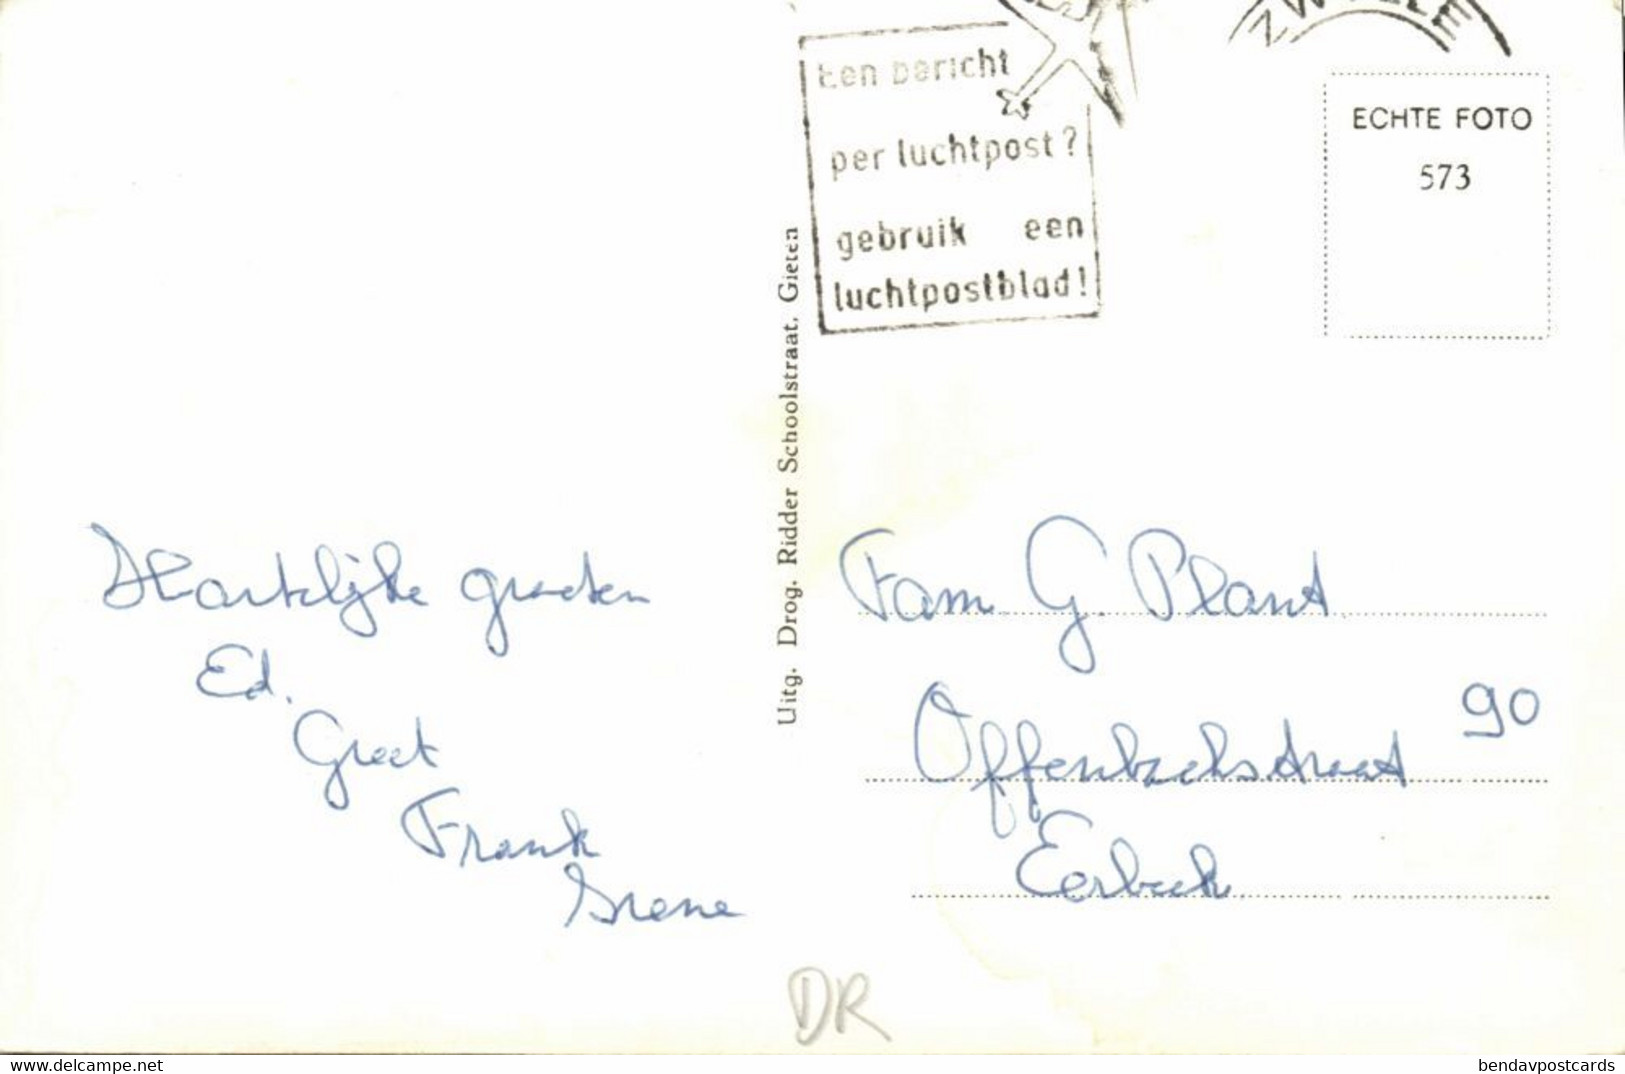 ZWOLLE
Een bericht
per luchtpost?
gebruik een
luchtpostblad!
ECHTE FOTO
573
Uitg. Drog. Ridder Schoolstraat, Gieten
Hartelijke groeten
Ed.
Greet
Frank
Irene
Fam G. Plant
Offenbachstraat 90
Eerbeek
DR
www.delcampe.net
bendavpostcards